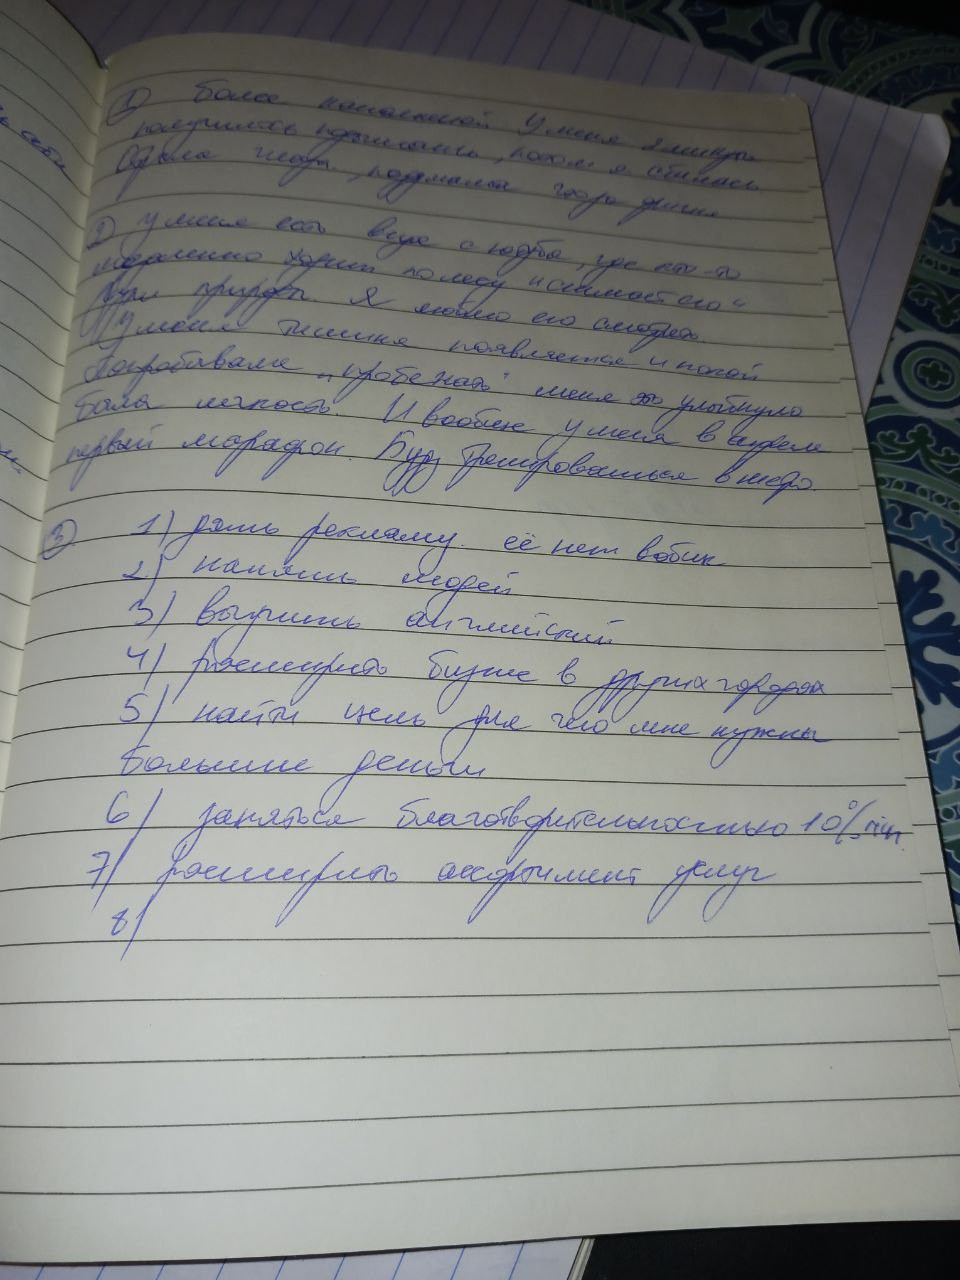 1) более
получилось подышать, потом я сбилась
2) У меня есть видео с ютуба, где кто-то
медленно ходит по лесу и снимает его
природы. Я люблю его смотреть.
У меня тишина появляется и покой
Попробовала "пробежать" меня это улыбнуло
была легкость. И вообще у меня в апреле
первый марафон. Буду тренироваться
3) 1) дать рекламу. её нет вобще
2) нанять людей
3) выучить английский
4) расширить бизнес в других городах
5) найти цель для чего мне нужны
большие деньги
6) заняться благотворительностью 10%
7) расширить ассортимент услуг
8)